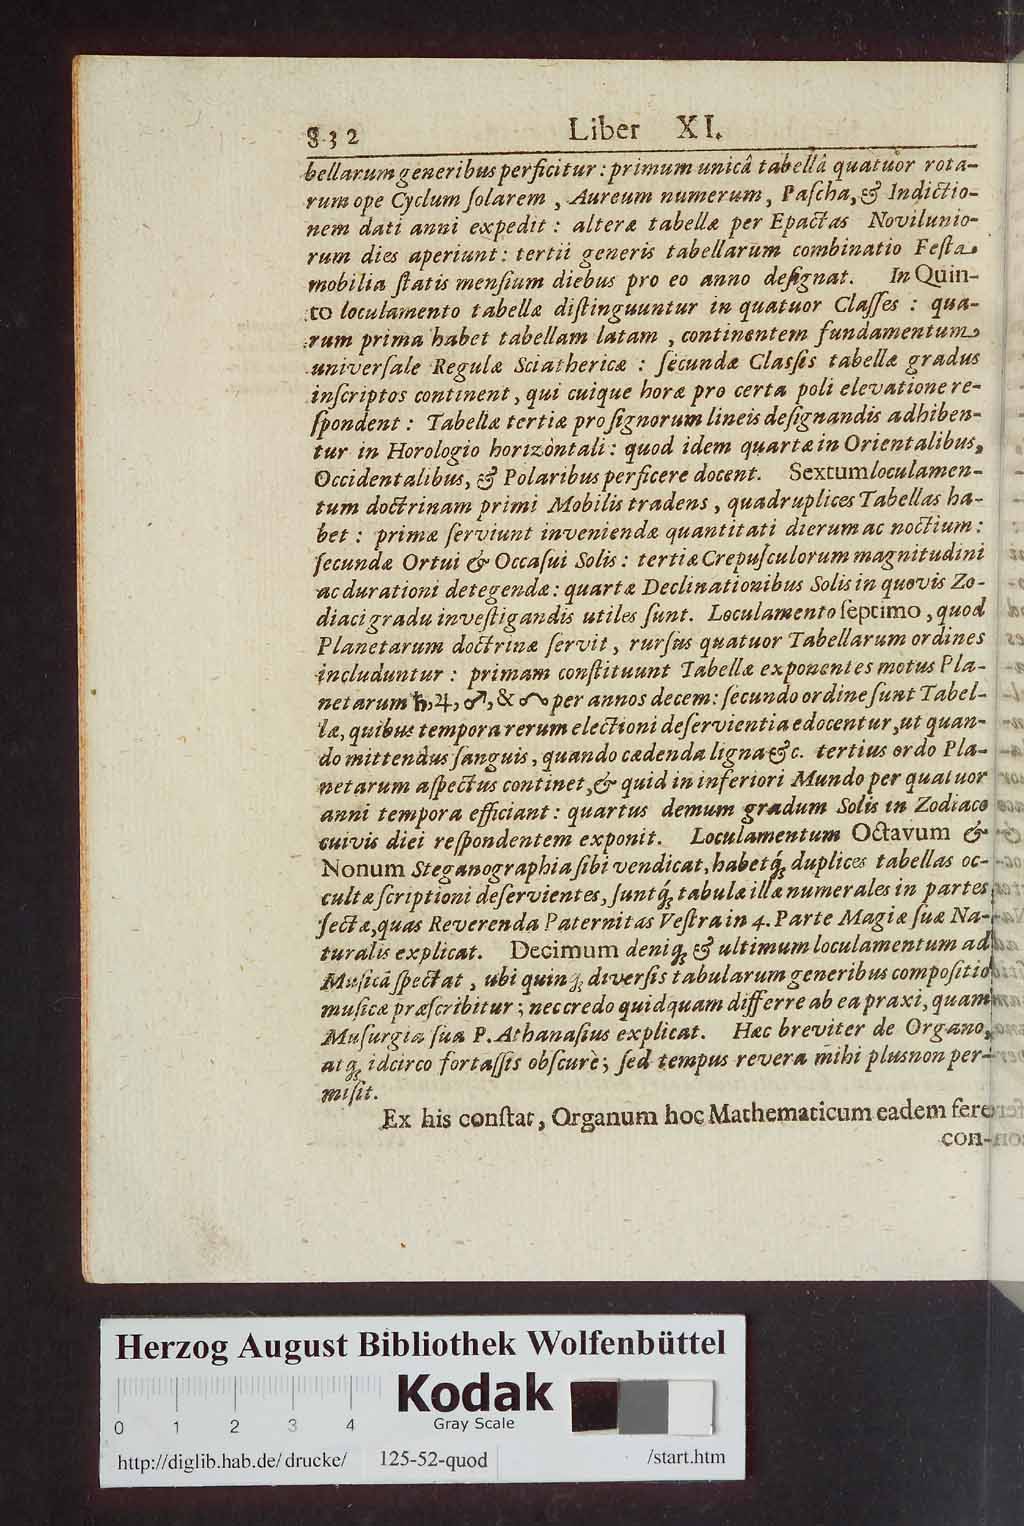 832 Liber XI.
bellarum generibus perficitur: primum unicâ tabellâ quatuor rota-
rum ope Cyclum ſolarem, Aureum numerum, Paſcha, & Indictio-
nem dati anni expedit: alteræ tabellæ per Epactas Novilunio-
rum dies aperiunt: tertii generis tabellarum combinatio Feſta
mobilia ſtatis menſium diebus pro eo anno deſignat. In Quin-
to loculamento tabellæ diſtinguuntur in quatuor Claſſes: qua-
rum prima habet tabellam latam, continentem fundamentum
univerſale Regulæ Sciathericæ: ſecundæ Claſſis tabellæ gradus
inſcriptos continent, qui cuique horæ pro certa poli elevatione re-
ſpondent: Tabellæ tertiæ pro ſignorum lineis deſignandis adhiben-
tur in Horologio horizòntali: quod idem quartæ in Orientalibus,
Occidentalibus, & Polaribus perficere docent. Sextum loculamen-
tum doctrinam primi Mobilis tradens, quadruplices Tabellas ha-
bet: primæ ſerviunt inveniendæ quantitati dierum ac noctium:
ſecundæ Ortui & Occaſui Solis: tertiæ Crepuſculorum magnitudini
ac durationi detegendæ: quartæ Declinationibus Solis in quovis Zo-
diaci gradu inveſtigandis utiles ſunt. Loculamento ſeptimo, quod
Planetarum doctrinæ ſervit, rurſus quatuor Tabellarum ordines
includuntur: primam conſtituunt Tabellæ exponentes motus Pla-
netarum ♄, ♃, ♂, & ☊ per annos decem: ſecundo ordine ſunt Tabel-
læ, quibus tempora rerum electioni deſervientia edocentur, ut quan-
do mittendus ſanguis, quando cædenda ligna &c. tertius ordo Pla-
netarum aſpectus continet, & quid in inferiori Mundo per quatuor
anni tempora efficiant: quartus demum gradum Solis in Zodiaco
cuivis diei reſpondentem exponit. Loculamentum Octavum &
Nonum Steganographia ſibi vendicat, habetq́; duplices tabellas oc-
cultæ ſcriptioni deſervientes, ſuntq́; tabulæ illæ numerales in partes
ſectæ, quas Reverenda Paternitas Veſtra in 4. Parte Magiæ ſuæ Na-
turalis explicat. Decimum deniq; & ultimum loculamentum ad
Muſicã ſpectat, ubi quinq; diverſis tabularum generibus compoſitio
muſicæ præſcribitur; nec credo quidquam differre ab ea praxi, quam
Muſurgia ſua P. Athanaſius explicat. Hæc breviter de Organo,
atq; idcirco fortaſſis obſcurè; ſed tempus revera mihi plus non per-
miſit.
Ex his conſtat, Organum hoc Mathematicum eadem fere
con-
Herzog August Bibliothek Wolfenbüttel
Kodak
Gray Scale
0 1 2 3 4
http://diglib.hab.de/drucke/ 125-52-quod /start.htm